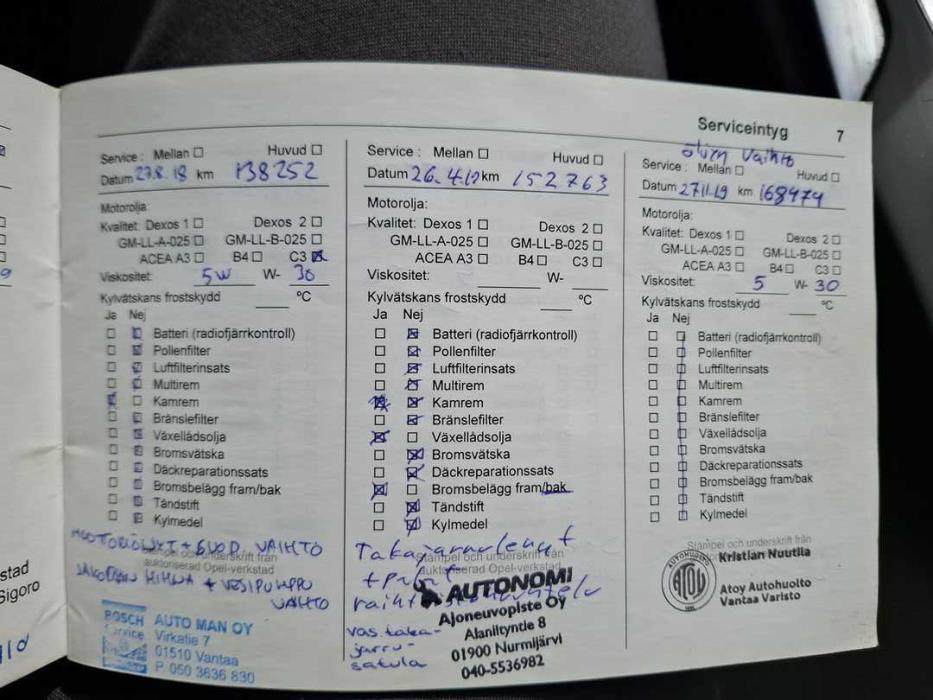 Serviceintyg 7
Service : Mellan ☐ Huvud ☐
Datum 27.8.18 km 138252
Motorolja:
Kvalitet: Dexos 1 ☐ Dexos 2 ☐
GM-LL-A-025 ☐ GM-LL-B-025 ☐
ACEA A3 ☐ B4 ☐ C3 ☒
Viskositet: 5W W- 30
Kylvätskans frostskydd ____ °C
Ja Nej
Batteri (radiofjärrkontroll)
Pollenfilter
Luftfilterinsats
Multirem
Kamrem
Bränslefilter
Växellådsolja
Bromsvätska
Däckreparationssats
Bromsbelägg fram/bak
Tändstift
Kylmedel
MOOTTORIÖLJYT + SUOD. VAIHTO
Stämpel och underskrift från
auktoriserad Opel-verkstad
JAKOPÄÄN HIHNA + VESIPUMPPU
VAIHTO
BOSCH AUTO MAN OY
Service Virkatie 7
01510 Vantaa
P. 050 3636 830
Service : Mellan ☐ Huvud ☐
Datum 26.4.19 km 152763
Motorolja:
Kvalitet: Dexos 1 ☐ Dexos 2 ☐
GM-LL-A-025 ☐ GM-LL-B-025 ☐
ACEA A3 ☐ B4 ☐ C3 ☐
Viskositet: ____ W- ____
Kylvätskans frostskydd ____ °C
Ja Nej
Batteri (radiofjärrkontroll)
Pollenfilter
Luftfilterinsats
Multirem
Kamrem
Bränslefilter
Växellådsolja
Bromsvätska
Däckreparationssats
Bromsbelägg fram/bak
Tändstift
Kylmedel
Takajarrulevyt
Stämpel och underskrift från
auktoriserad Opel-verkstad
AUTONOMI
Ajoneuvopiste Oy
Alanityntie 8
01900 Nurmijärvi
040-5536982
vas. taka-
jarru-
satula
öljyn vaihto
Service : Mellan ☐ Huvud ☐
Datum 27.11.19 km 168474
Motorolja:
Kvalitet: Dexos 1 ☐ Dexos 2 ☐
GM-LL-A-025 ☐ GM-LL-B-025 ☐
ACEA A3 ☐ B4 ☐ C3 ☐
Viskositet: 5 W- 30
Kylvätskans frostskydd ____ °C
Ja Nej
Batteri (radiofjärrkontroll)
Pollenfilter
Luftfilterinsats
Multirem
Kamrem
Bränslefilter
Växellådsolja
Bromsvätska
Däckreparationssats
Bromsbelägg fram/bak
Tändstift
Kylmedel
Stämpel och underskrift från
Kristian Nuutila
AUTOHUOLTO
ATOY
Atoy Autohuolto
Vantaa Varisto